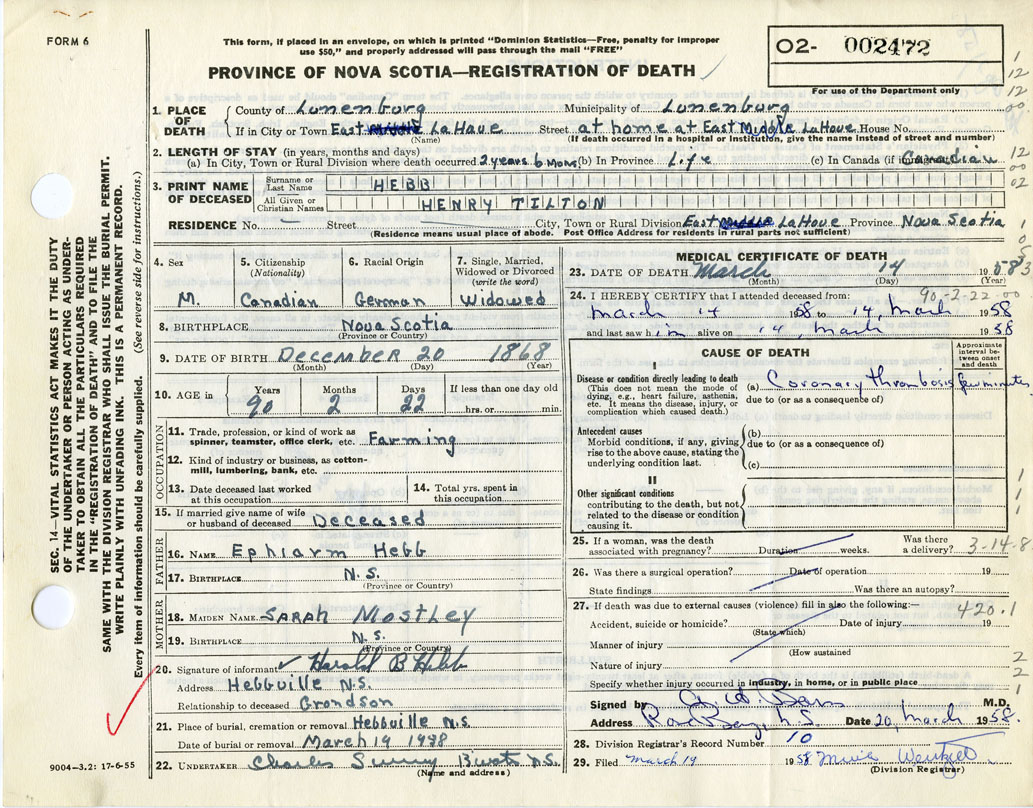 FORM 6
This form, if placed in an envelope, on which is printed "Dominion Statistics—Free, penalty for improper
use $50," and properly addressed will pass through the mail "FREE"
O2- 002472
PROVINCE OF NOVA SCOTIA—REGISTRATION OF DEATH
For use of the Department only
1. PLACE OF DEATH County of Lunenburg Municipality of Lunenburg
If in City or Town East LaHave Street at home at East Middle LaHave House No.
(Name) (If death occurred in Hospital or Institution, give the name instead of street and number)
2. LENGTH OF STAY (in years, months and days)
(a) In City, Town or Rural Division where death occurred 2 years 6 mons. (b) In Province Life (c) In Canada (if immigrant) Canadian
3. PRINT NAME OF DECEASED Surname or Last Name HEBB
All Given or Christian Names HENRY TILTON
RESIDENCE No. Street City, Town or Rural Division East Middle LaHave Province Nova Scotia
(Residence means usual place of abode. Post Office Address for residents in rural parts not sufficient)
SEC. 14—VITAL STATISTICS ACT MAKES IT THE DUTY
OF THE UNDERTAKER OR PERSON ACTING AS UNDER-
TAKER TO OBTAIN ALL THE PARTICULARS REQUIRED
IN THE "REGISTRATION OF DEATH" AND TO FILE THE
SAME WITH THE DIVISION REGISTRAR WHO SHALL ISSUE THE BURIAL PERMIT.
WRITE PLAINLY WITH UNFADING INK. THIS IS A PERMANENT RECORD.
Every item of information should be carefully supplied. (See reverse side for instructions.)
4. Sex M.
5. Citizenship (Nationality) Canadian
6. Racial Origin German
7. Single, Married, Widowed or Divorced (write the word) Widowed
8. BIRTHPLACE Nova Scotia
(Province or Country)
9. DATE OF BIRTH December 20 1868
(Month) (Day) (Year)
10. AGE in Years 90 Months 2 Days 22 If less than one day old hrs. or min.
OCCUPATION
11. Trade, profession, or kind of work as
spinner, teamster, office clerk, etc. Farming
12. Kind of industry or business, as cotton-
mill, lumbering, bank, etc.
13. Date deceased last worked at this occupation
14. Total yrs. spent in this occupation
15. If married give name of wife
or husband of deceased Deceased
FATHER
16. NAME Ephiarm Hebb
17. BIRTHPLACE N.S.
(Province or Country)
MOTHER
18. MAIDEN NAME SARAH Mostley
19. BIRTHPLACE N.S.
(Province or Country)
20. Signature of informant Harold B Hebb
Address Hebbville N.S.
Relationship to deceased Grandson
21. Place of burial, cremation or removal Hebbville N.S.
Date of burial or removal March 19 1938
22. UNDERTAKER Charles
(Name and address)
9004—3.2: 17-6-55
MEDICAL CERTIFICATE OF DEATH
23. DATE OF DEATH March 14 1958
(Month) (Day) (Year)
90-2-22-00
24. I HEREBY CERTIFY that I attended deceased from:
March 14 1958 to 14, March 1958
and last saw him alive on 14, March 1958
CAUSE OF DEATH
Approximate interval between onset and death
I
Disease or condition directly leading to death
(This does not mean the mode of
dying, e.g., heart failure, asthenia,
etc. It means the disease, injury, or
complication which caused death.)
(a) Coronary thrombosis few minutes
due to (or as a consequence of)
Antecedent causes
Morbid conditions, if any, giving
rise to the above cause, stating the
underlying condition last.
(b)
due to (or as a consequence of)
(c)
II
Other significant conditions
contributing to the death, but not
related to the disease or condition
causing it.
25. If a woman, was the death
associated with pregnancy? Duration weeks. Was there a delivery? 3-14-8
26. Was there a surgical operation? Date of operation 19
State findings Was there an autopsy?
27. If death was due to external causes (violence) fill in also the following:—
420.1
Accident, suicide or homicide? Date of injury 19
(State which)
Manner of injury
(How sustained
Nature of injury
Specify whether injury occurred in industry, in home, or in public place
Signed by M.D.
Address Rose Bay, N.S. Date 20, March 1958.
28. Division Registrar's Record Number 10
29. Filed March 19 1958
(Division Registrar)